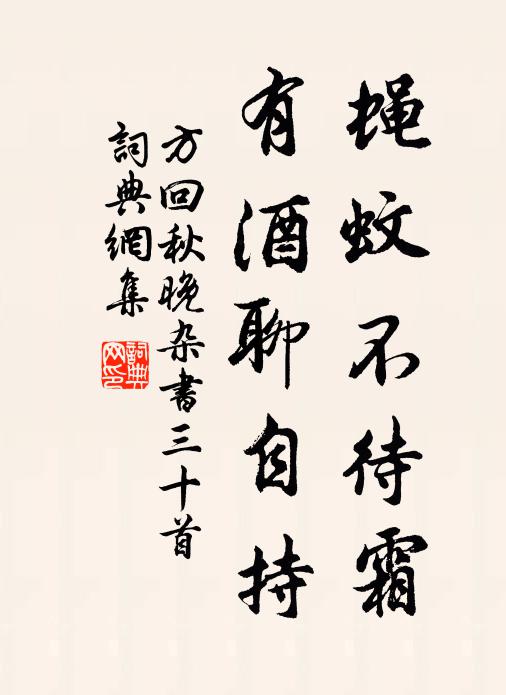 蝇蚊不待霜
有酒聊自持
方回秋晚杂書三十首
詞典網集
詞典網印